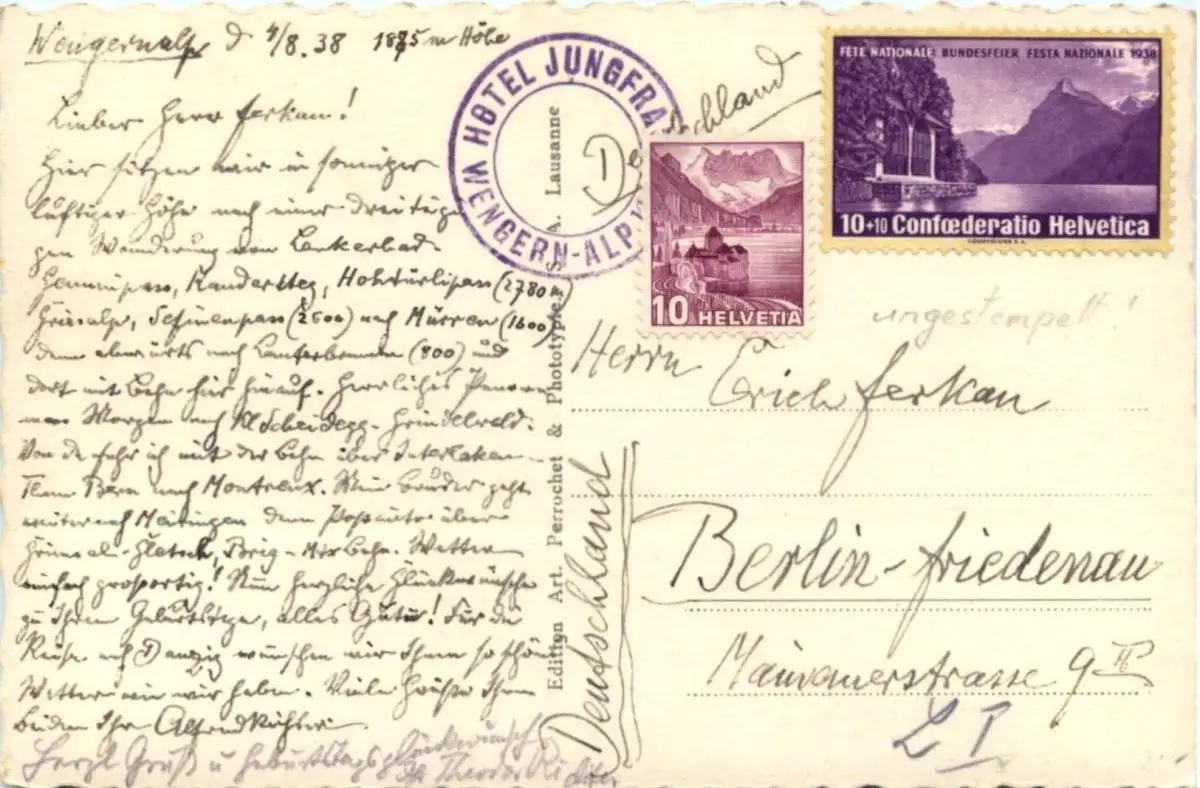 Wengernalp d 4/8.38 1875 m Höhe
Lieber Herr Ferkan!
Hier sitzen wir in sonniger
luftiger Höhe nach einer dreitägi-
gen Wanderung von Leukerbad.
Gemmipass, Kandersteg, Hohtürlipass (2780 m)
Griesalp, Sefinenpass (2600) nach Mürren (1600)
dann abwärts nach Lauterbrunnen (800) und
dort mit Bahn hier hinauf. Herrliches Panora-
ma. Morgen nach Kl Scheidegg - Grindelwald.
Von da fahr ich mit der Bahn über Interlaken -
Thun Bern nach Montreux. Mein Bruder geht
weiter nach Meiringen dann Postauto über
Grimsel - Gletsch, Brig - Bahn. Wetter
einfach grossartig! Nun herzliche Glückwünsche
zu Ihrem Geburtstage, alles Gute! Für die
Reise nach Danzig wünschen wir Ihnen so schön
Wetter wie wir haben. Viele Grüße Ihnen
beiden Ihr Alfred Richter
Herzl Gruß u Geburtstagsglückwunsch
Ihr Theodor Richter
HOTEL JUNGFRA
WENGERN-ALP
Deutschland
Edition Art. Perrochet & Phototypie, S. A. Lausanne
Deutschland
10 HELVETIA
FETE NATIONALE BUNDESFEIER FESTA NAZIONALE 1938
10+10 Confœderatio Helvetica
COURVOISIER S.A.
ungestempelt!
Herrn Erich Ferkan
Berlin-Friedenau
Mainauerstrasse 9 II
L I